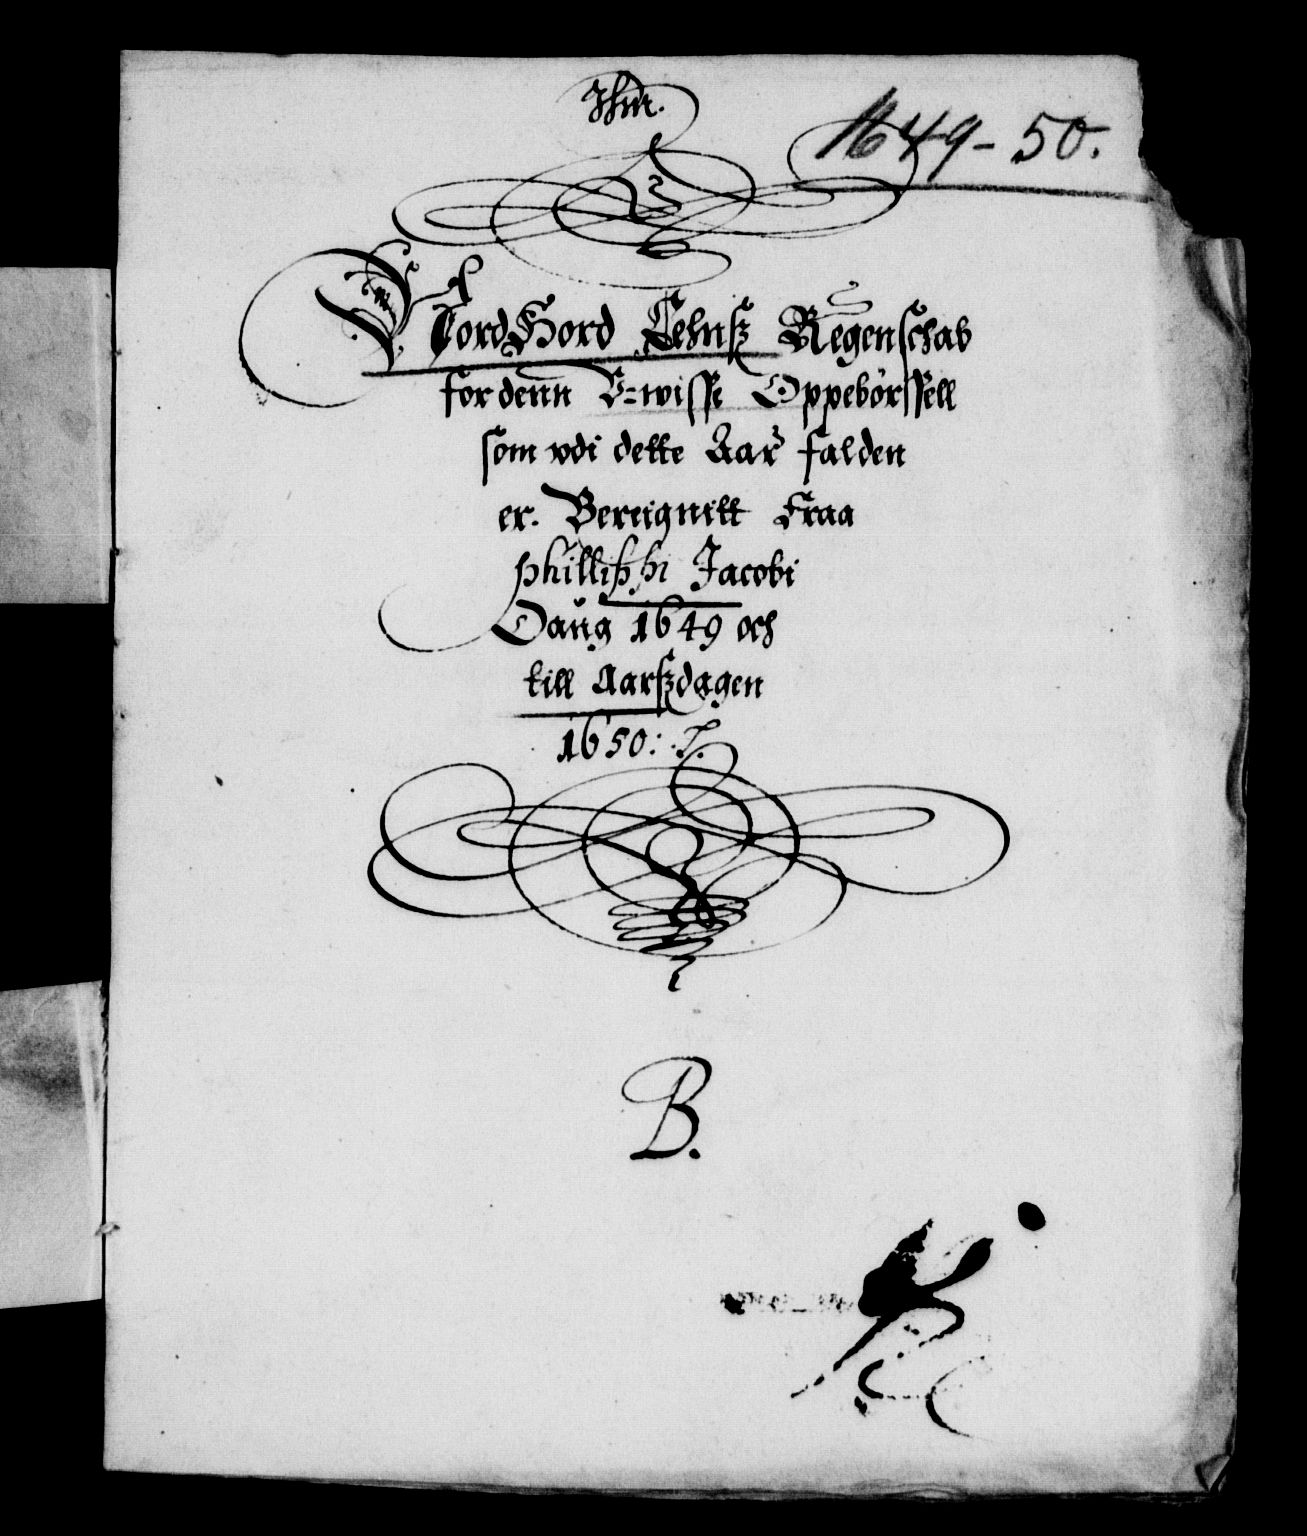 Ihm.
1649-50.
Fiord Hord Lehnsz Regenschab
for denn U=wisse Oppebörssell
som vdi dette Aar falden
er. Bereignitt Fraa
Phillippi Jacobi
Daug 1649 och
till Aarszdagen
1650:
B.